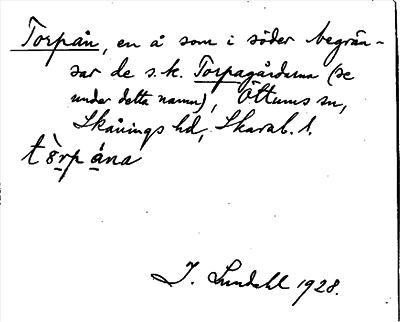 Torpån, en å som i söder begrän-
sar de s.k. Torpagårdarna (se
under detta namn), Öttums sn,
Skånings hd, Skarab. l.
tòrpåna
I. Lundahl 1928.